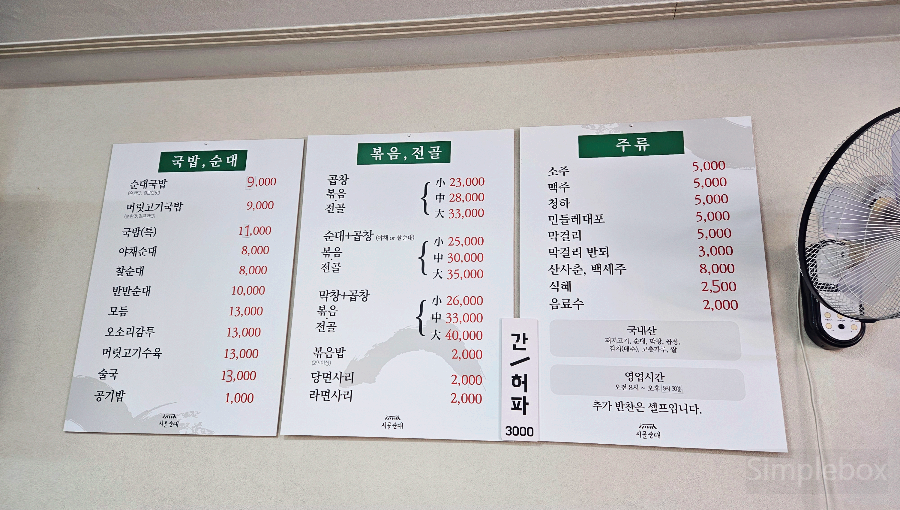 국밥, 순대
순대국밥 9,000
머릿고기국밥 9,000
국밥(특) 11,000
야채순대 8,000
찰순대 8,000
반반순대 10,000
모듬 13,000
오소리감투 13,000
머릿고기수육 13,000
술국 13,000
공기밥 1,000
시골순대
볶음, 전골
곱창
볶음
전골
小 23,000
中 28,000
大 33,000
순대+곱창
볶음
전골
小 25,000
中 30,000
大 35,000
막창+곱창
볶음
전골
小 26,000
中 33,000
大 40,000
볶음밥 2,000
당면사리 2,000
라면사리 2,000
시골순대
간/허파
3000
주류
소주 5,000
맥주 5,000
청하 5,000
민들레대포 5,000
막걸리 5,000
막걸리 반되 3,000
산사춘, 백세주 8,000
식혜 2,500
음료수 2,000
국내산
영업시간
추가 반찬은 셀프입니다.
시골순대
Simplebox